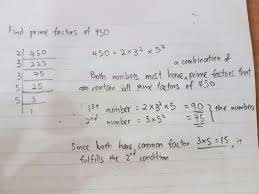 Find prime factors of 450
2 | 450
3 | 225
3 | 75
5 | 25
5 | 5
1
450 = 2 × 3² × 5²
a combination of
Both numbers must have prime factors that
can contain all prime factors of 450
1st number = 2 × 3² × 5 = 90
2nd number = 3 × 5² = 75
} the numbers
Since both have common factor 3×5 = 15, it
fulfills the 2nd condition